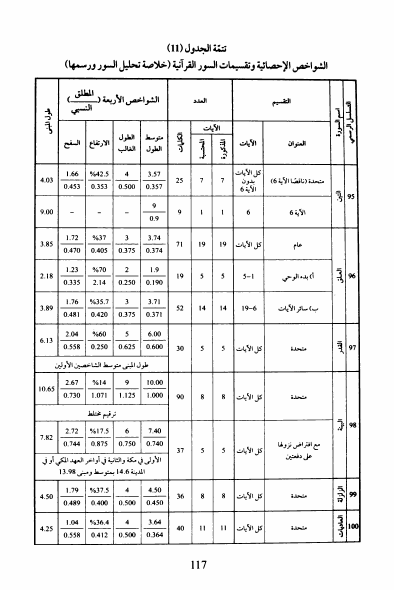 تتمّة الجدول (11)
الشواخص الإحصائية وتقسيمات السور القرآنية (خلاصة تحليل السور ورسمها)
التسلسل الرسمي اسم السورة التقسيم العدد الشواخص الأربعة (المطلق / النسبي) طول المبنى
العنوان الآيات الآيات الكلمات متوسط الطول الطول الغالب الارتفاع السفح
المذكورة المحتسبة
95 التين متحدة (ناقصًا الآية 6) كل الآيات بدون الآية 6 7 7 25 3.57 4 %42.5 1.66 4.03
0.357 0.500 0.353 0.453
الآية 6 6 1 1 9 9 - - - 9.00
0.9
96 العلق عام كل الآيات 19 19 71 3.74 3 %37 1.72 3.85
0.374 0.375 0.405 0.470
أ) بدء الوحي 1-5 5 5 19 1.9 2 %70 1.23 2.18
0.190 0.250 2.14 0.335
ب) سائر الآيات 6-19 14 14 52 3.71 3 %35.7 1.76 3.89
0.371 0.375 0.420 0.481
97 القدر متحدة كل الآيات 5 5 30 6.00 5 %60 2.04 6.13
0.600 0.625 0.250 0.558
طول المبنى متوسط الشاخصين الأولين
98 البينة متحدة كل الآيات 8 8 90 10.00 9 %14 2.67 10.65
1.000 1.125 1.071 0.730
ترقيم مختلط
مع افتراض نزولها على دفعتين كل الآيات 5 5 37 7.40 6 %17.5 2.72 7.82
0.740 0.750 0.875 0.744
الأولى في مكة والثانية في أواخر العهد المكي أو في
المدينة 14.6 بمتوسط ومبنى 13.98
99 الزلزلة متحدة كل الآيات 8 8 36 4.50 4 %37.5 1.79 4.50
0.450 0.500 0.400 0.489
100 العاديات متحدة كل الآيات 11 11 40 3.64 4 %36.4 1.04 4.25
0.364 0.500 0.412 0.558
117